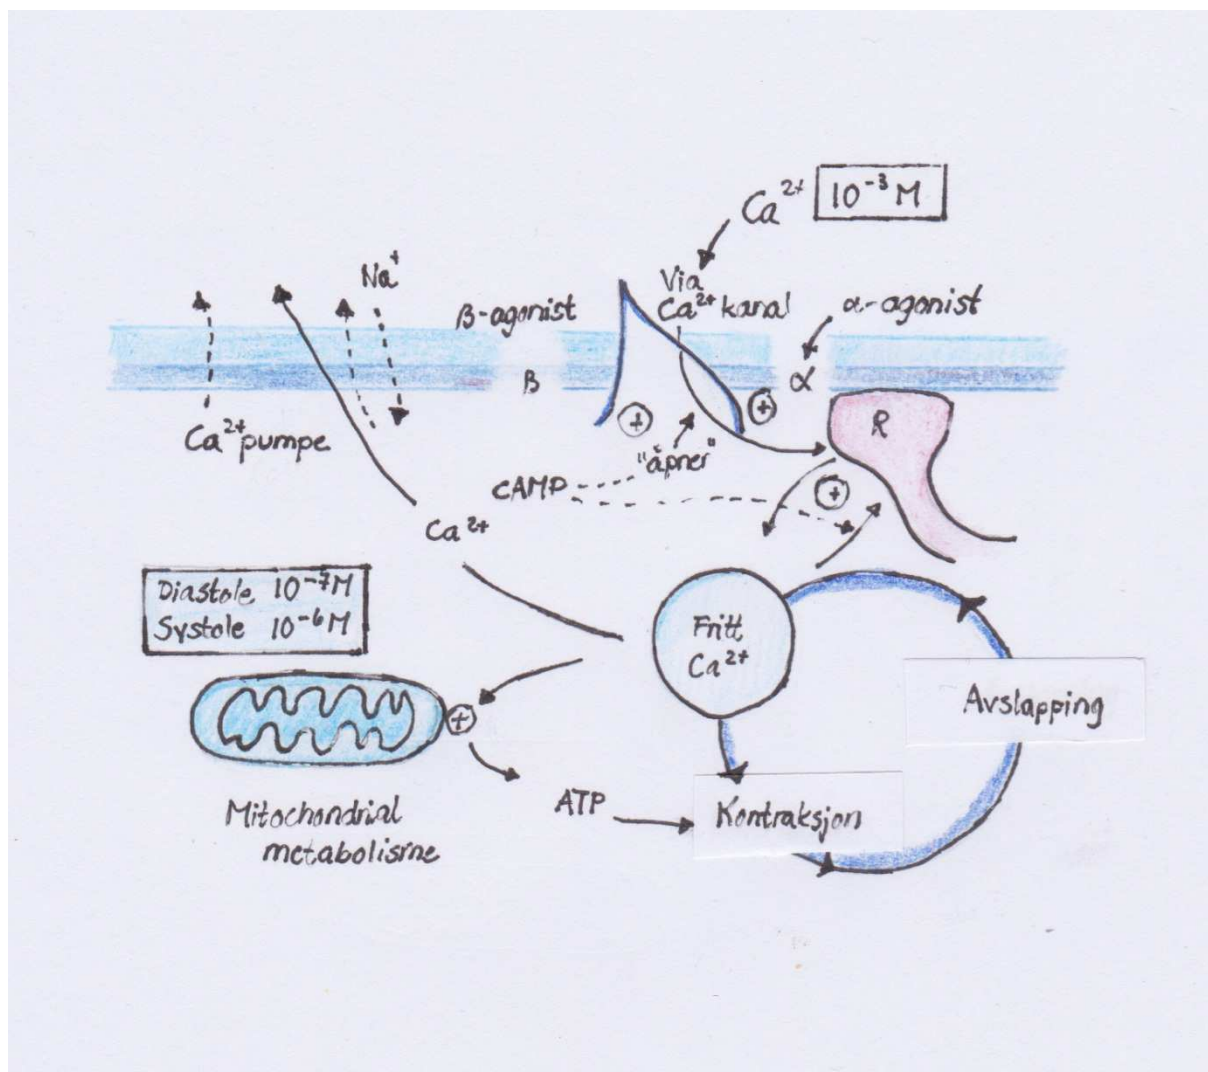 Ca²⁺ 10⁻³ M
Na⁺
Via
Ca²⁺ kanal
β-agonist
α-agonist
β
α
+
+
R
Ca²⁺ pumpe
"åpner"
cAMP
+
Ca²⁺
Diastole 10⁻⁷ M
Systole 10⁻⁶ M
Fritt
Ca²⁺
Avslapping
+
Mitochondrial
metabolisme
ATP
Kontraksjon